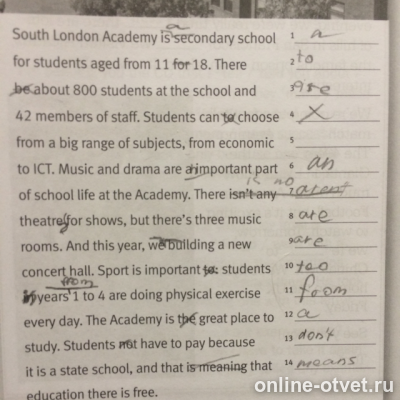 a
South London Academy is secondary school 1 a
for students aged from 11 for 18. There 2 to
be about 800 students at the school and 3 Are
42 members of staff. Students can to choose 4 X
from a big range of subjects, from economic 5
to ICT. Music and drama are a important part 6 an
is no
of school life at the Academy. There isn't any 7 arent
theatre for shows, but there's three music 8 are
rooms. And this year, we building a new 9 are
concert hall. Sport is important to students 10 too
from
in years 1 to 4 are doing physical exercise 11 from
every day. The Academy is the great place to 12 a
study. Students not have to pay because 13 don't
it is a state school, and that is meaning that 14 means
education there is free.
online-otvet.ru